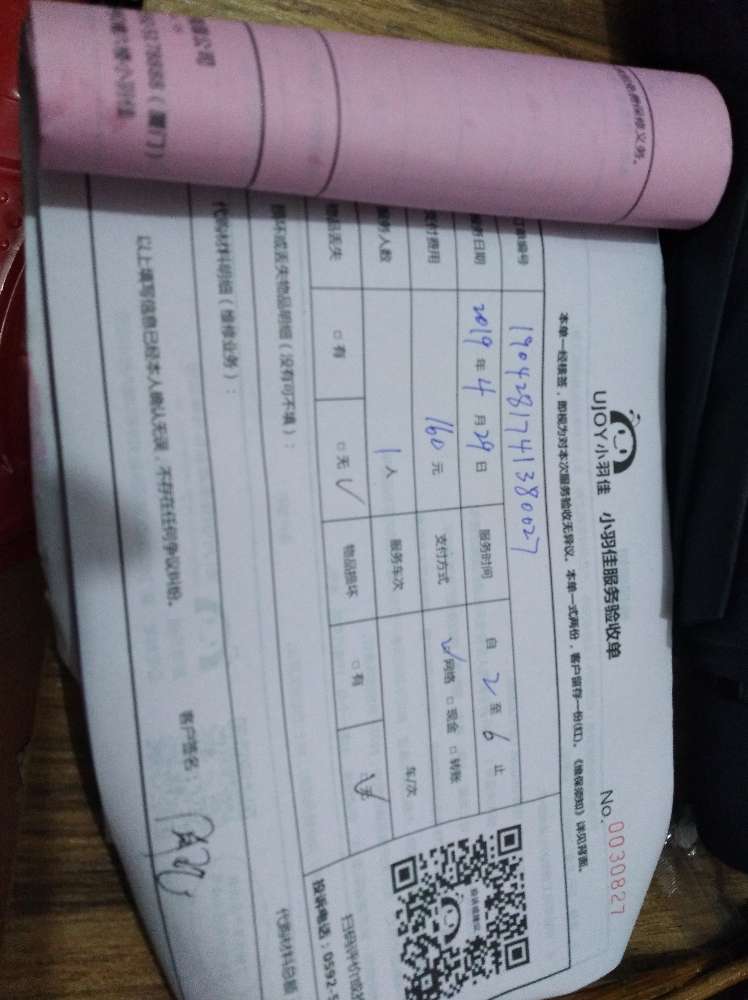 UJOY小羽佳 小羽佳服务验收单 No.0030827
本单一经核签，即视为对本次服务验收无异议。本单一式两份，客户留存一份(红)。《维保须知》详见背面。
订单编号 190428174138027
服务日期 2019年4月29日 服务时间 自2至6止
支付费用 160元 支付方式 ☑网络 □现金 □转账
服务人数 1人 服务车次 车/次
物品丢失 □有 □无√ 物品损坏 □有 □无√
损坏或丢失物品明细（没有可不填）：
代购材料明细（维修业务）：
代购材料总额
以上填写信息已经本人确认无误，不存在任何争议纠纷。
客户签名：
投诉或建议
扫码评价或
投诉电话：0592-5
免费保修义务。
公司
（厦门）